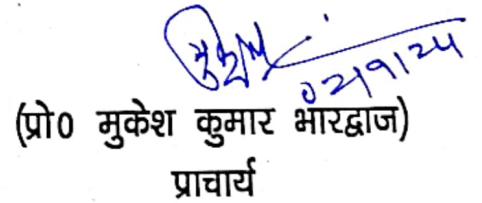 02/9/24
(प्रो0 मुकेश कुमार भारद्वाज)
प्राचार्य